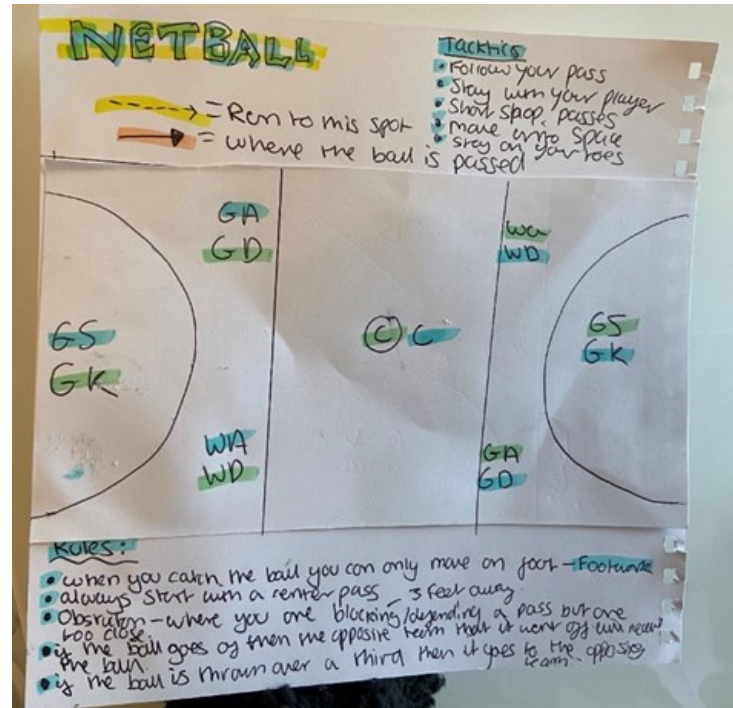 NETBALL
Tacktics
• Follow your pass
• Stay with your player
• Short shop. passes
• move into space
• stay on your toes
= Run to this spot
= where the ball is passed
GA
GD
WA
WD
GS
GK
C C
GS
GK
WA
WD
GA
GD
Rules:
• when you catch the ball you can only move on foot - Footwork
• always start with a center pass
• Obstrution - where you are blocking/defending a pass but are - 3 feet away.
too close.
• if the ball goes of then the opposite team that it went off will
the ball.
• if the ball is thrown over a third then it goes to the opposing
team.